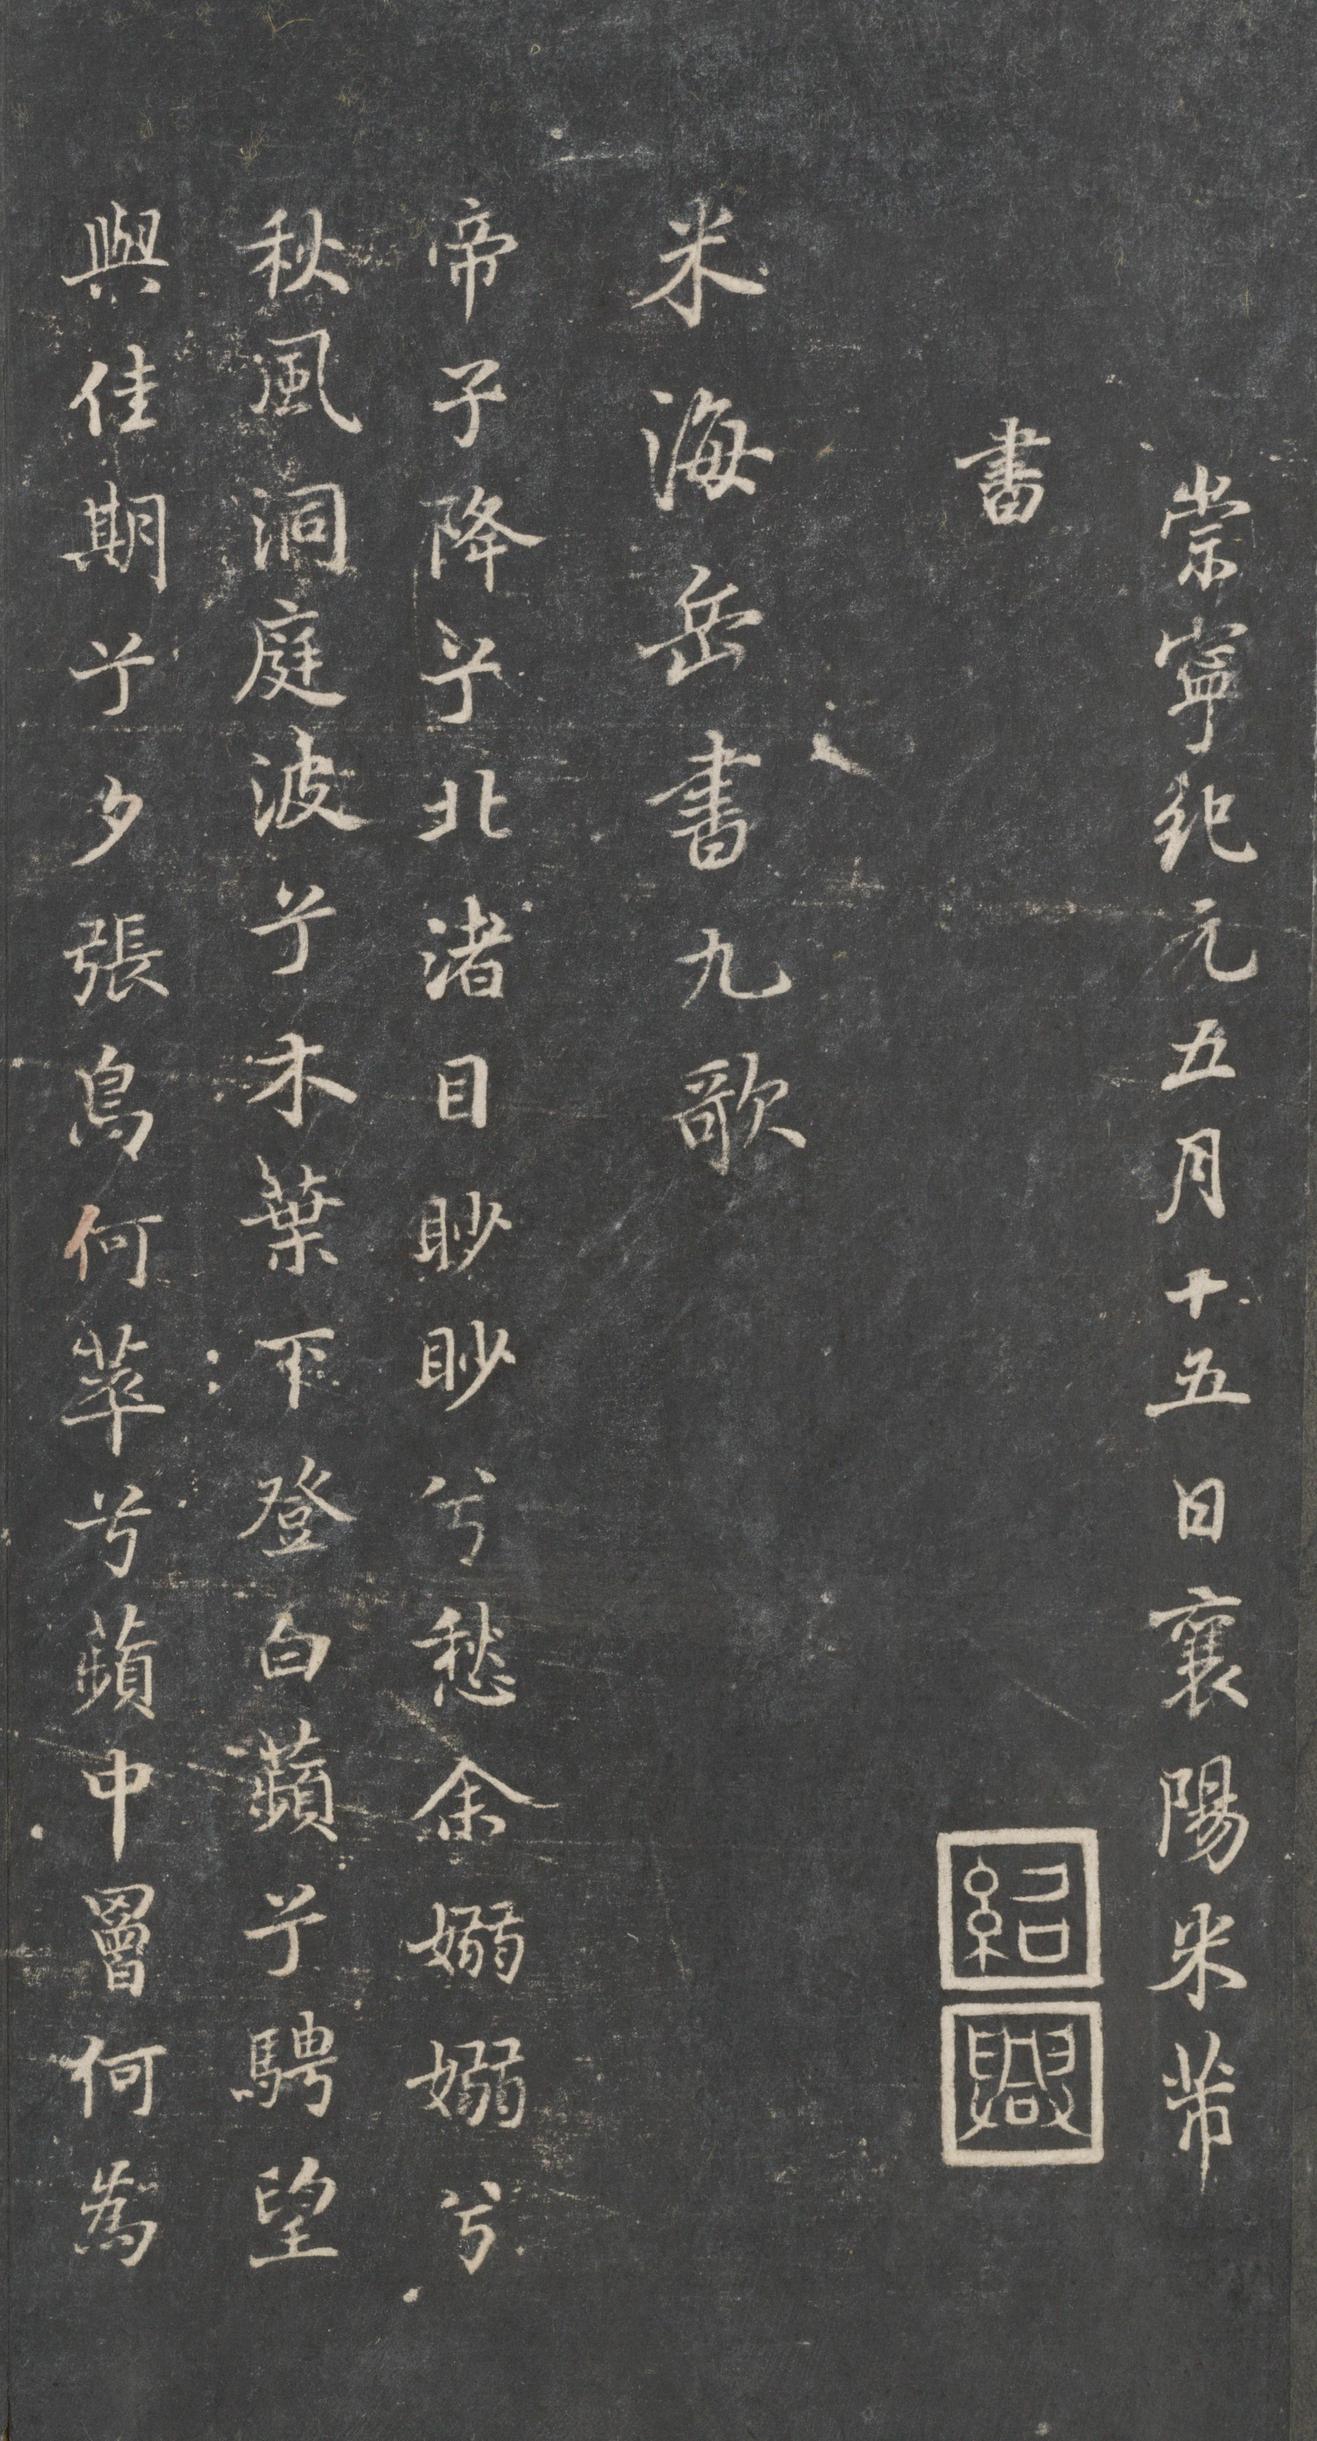 崇寧紀元五月十五日襄陽米芾
書
紹
興
米海岳書九歌
帝子降兮北渚目眇眇兮愁余嫋嫋兮
秋風洞庭波兮木葉下登白蘋兮騁望
與佳期兮夕張鳥何萃兮蘋中罾何為